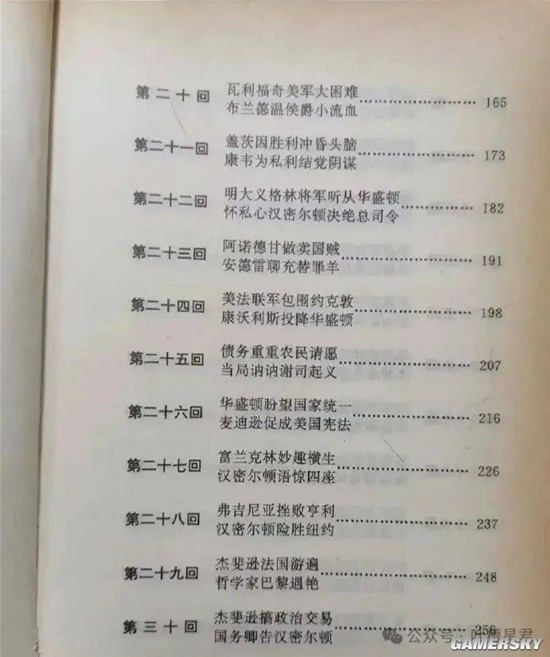 第二十回
瓦利福奇美军大困难
布兰德温侯爵小流血
165
第二十一回
盖茨因胜利冲昏头脑
康韦为私利结党阴谋
173
第二十二回
明大义格林将军听从华盛顿
怀私心汉密尔顿决绝总司令
182
第二十三回
阿诺德甘做卖国贼
安德雷聊充替罪羊
191
第二十四回
美法联军包围约克敦
康沃利斯投降华盛顿
198
第二十五回
债务重重农民请愿
当局讷讷谢司起义
207
第二十六回
华盛顿盼望国家统一
麦迪逊促成美国宪法
216
第二十七回
富兰克林妙趣横生
汉密尔顿语惊四座
226
第二十八回
弗吉尼亚挫败亨利
汉密尔顿险胜纽约
237
第二十九回
杰斐逊法国游遍
哲学家巴黎遇艳
248
第三十回
杰斐逊搞政治交易
国务卿告汉密尔顿
256
公众号
星君
GAMERSKY